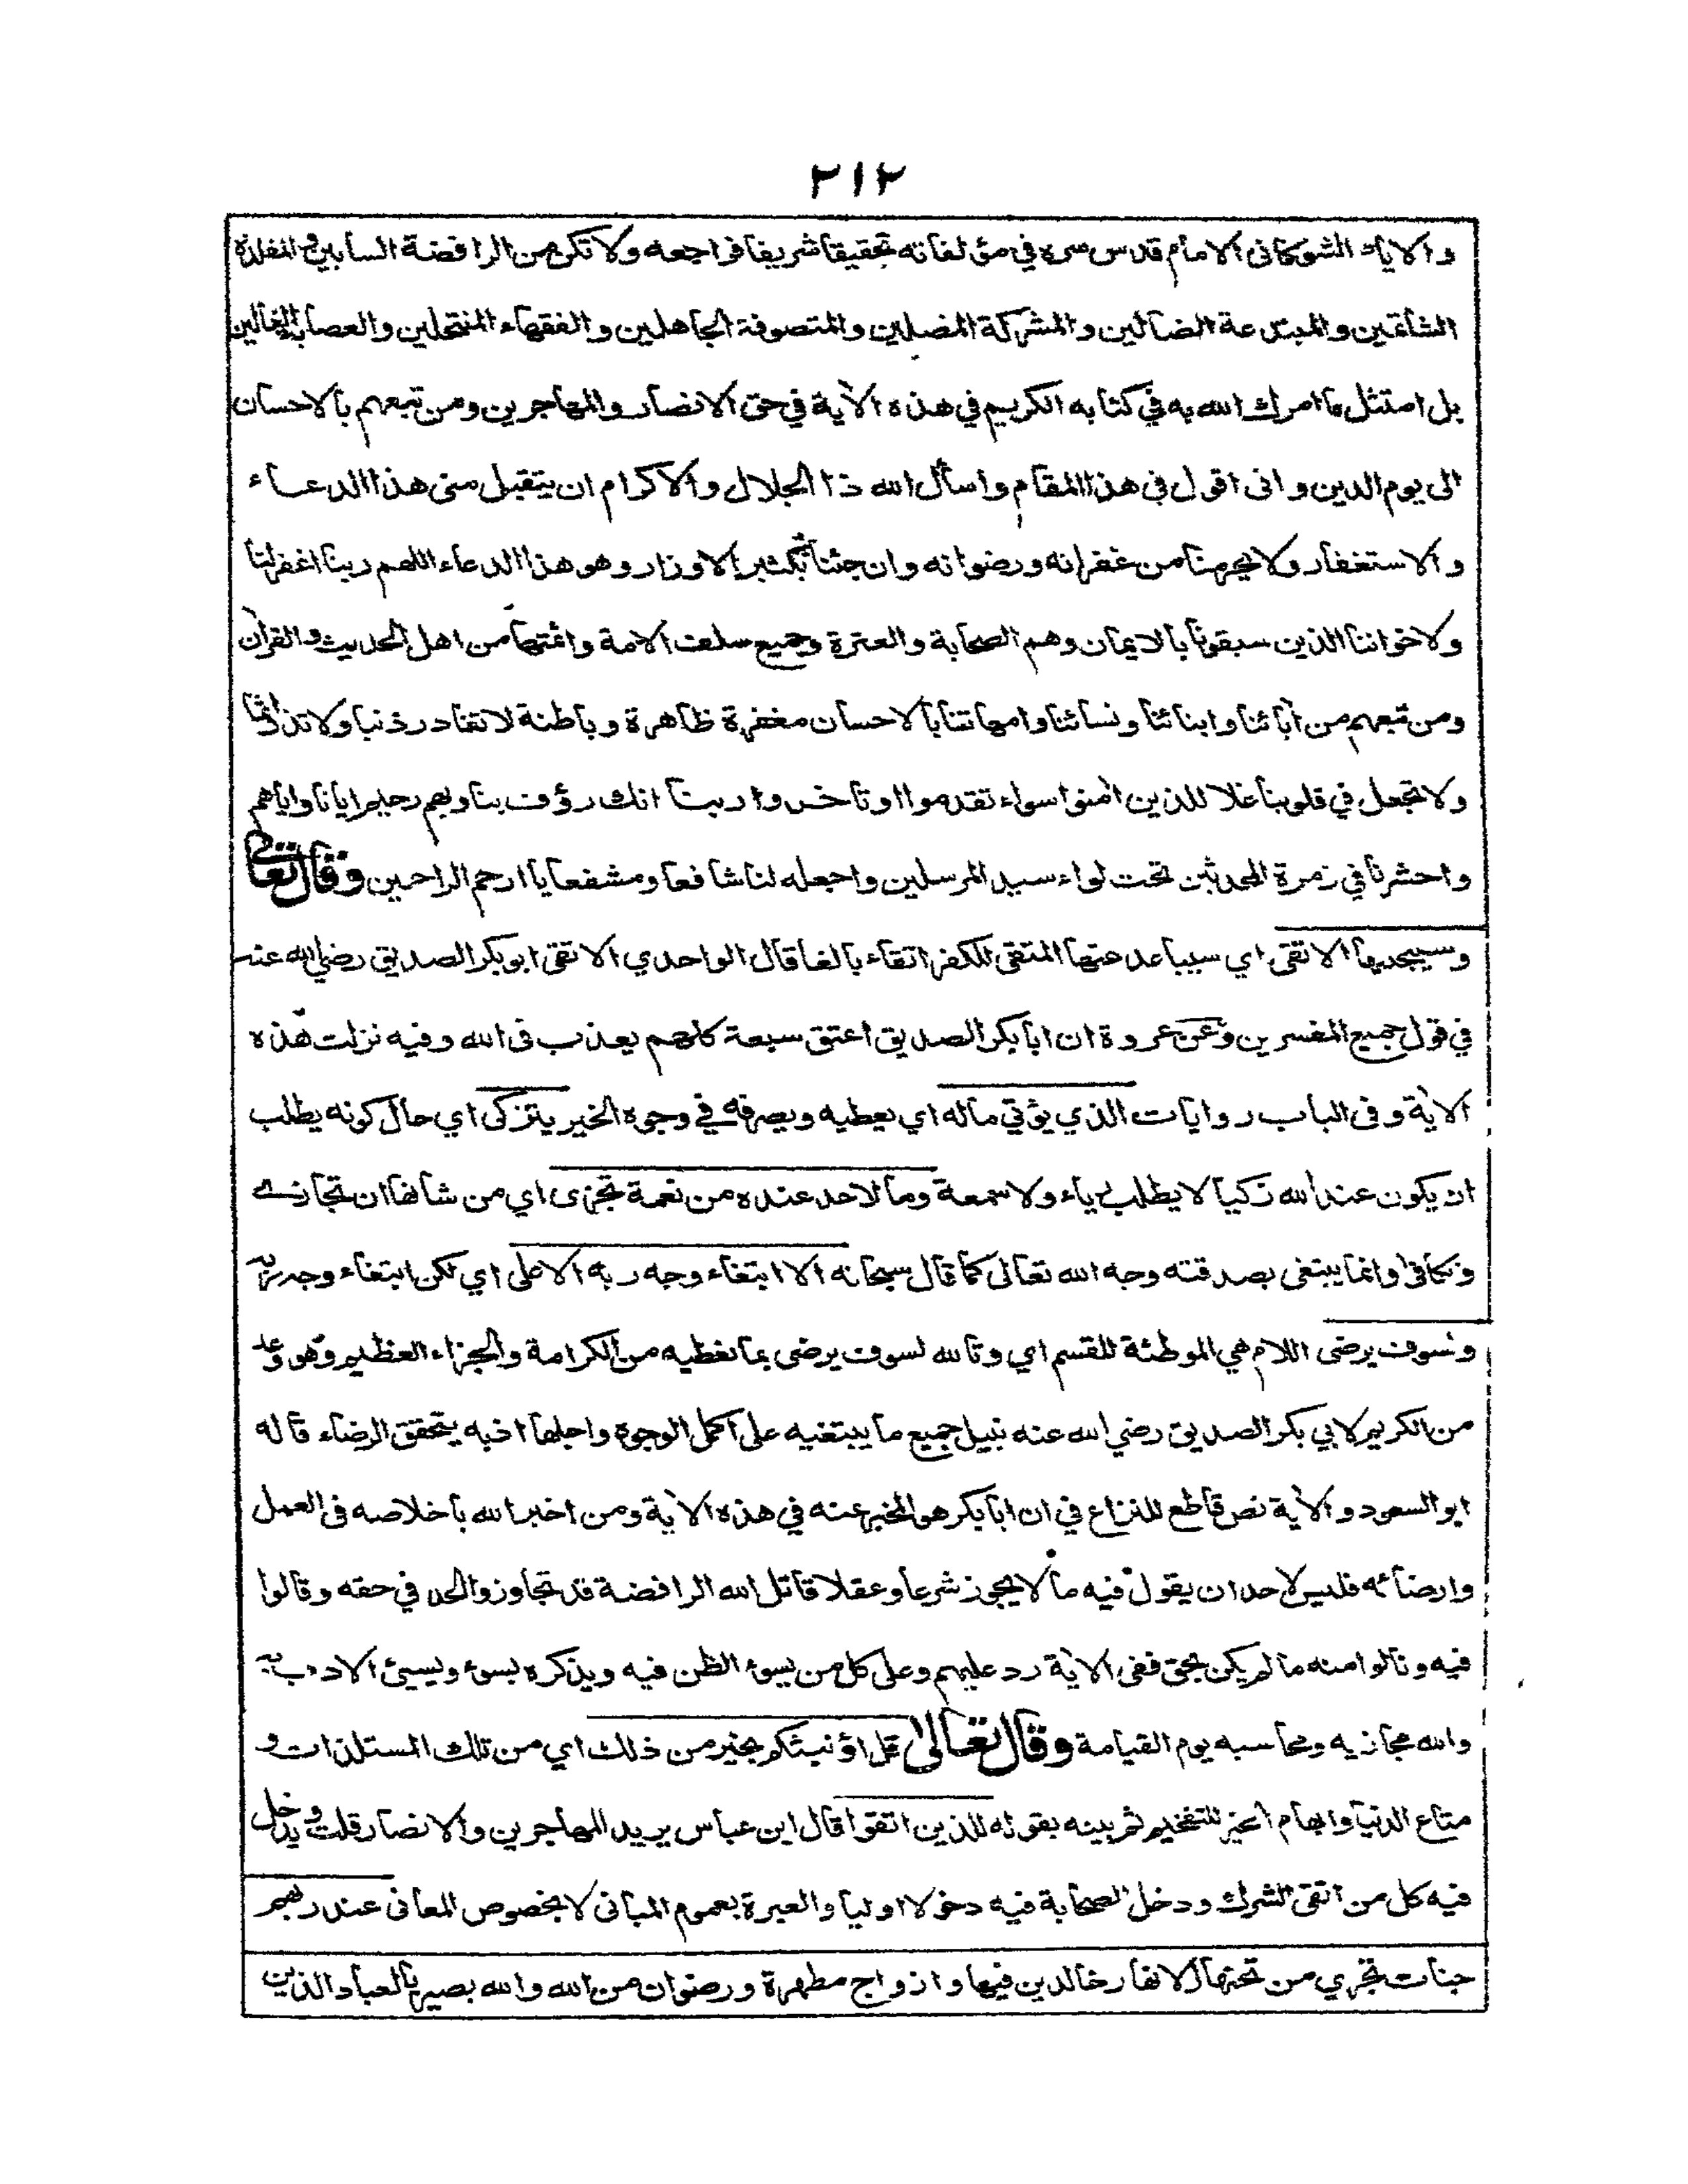 ٢١٢
والآيات الشوكانى الامام قدس سره في مؤلفاته تحقيقا شريفا فراجعه ولا تكن من الرافضة السابين والمقلدة
الشاقين والمبتدعة الضالين والمشركة المضلين والمتصوفة الجاهلين والفقهاء المنتحلين والعصابة الغالين
بل امتثل ما امرك الله به في كتابه الكريم في هذه الآية في حق الانصار والمهاجرين ومن تبعهم بالاحسان
الى يوم الدين وانى اقول في هذا المقام واسأل الله ذا الجلال والاكرام ان يتقبل منى هذا الدعاء
والاستغفار ولا يحرمنا من غفرانه ورضوانه وان جئنا بكثير الاوزار وهو هذا الدعاء اللهم ربنا اغفر لنا
ولاخواننا الذين سبقونا بالايمان وهم الصحابة والعترة وجميع سلف الامة وائمتها من اهل الحديث والقرآن
ومن تبعهم من آبائنا وابنائنا ونسائنا وامهاتنا بالاحسان مغفرة ظاهرة وباطنة لا تغادر ذنبا ولا تذر اثما
ولا تجعل في قلوبنا غلا للذين آمنوا سواء تقدموا او تأخروا ربنا انك رؤف بنا وبهم رحيم ايانا واياهم
واحشرنا في زمرة المحدثين تحت لواء سيد المرسلين واجعله لنا شافعا ومشفعا يا ارحم الراحمين وقال تعالى
وسيجنبها الاتقى اي سيباعد عنها المتقى للكفر اتقاء بالغا قال الواحدي الاتقى ابو بكر الصديق رضي الله عنه
في قول جميع المفسرين وعن عروة ان ابا بكر الصديق اعتق سبعة كلهم يعذب فى الله وفيه نزلت هذه
الآية وفى الباب روايات الذي يؤتي ماله اي يعطيه ويصرفه في وجوه الخير يتزكى اي حال كونه يطلب
ان يكون عند الله زكيا لا يطلب رياء ولا سمعة وما لاحد عنده من نعمة تجزى اي من شانها ان تجازى
وتكافى وانما يبتغى بصدقته وجه الله تعالى كما قال سبحانه الا ابتغاء وجه ربه الاعلى اي لكن ابتغاء وجه ربه
ولسوف يرضى اللام هي الموطئة للقسم اي وتالله لسوف يرضى بما نعطيه من الكرامة والجزاء العظيم وهو وعد
من الكريم لابي بكر الصديق رضي الله عنه بنيل جميع ما يبتغيه على اكمل الوجوه واجلها اذ به يتحقق الرضاء قاله
ابو السعود والآية نص قاطع للنزاع في ان ابا بكر هو المخبر عنه في هذه الآية ومن اخبر الله باخلاصه فى العمل
وارضائه فليس لاحد ان يقول فيه ما لا يجوز شرعا وعقلا قاتل الله الرافضة قد تجاوزوا الحد في حقه وقالوا
فيه ونالوا منه ما لم يكن بحق ففى الآية رد عليهم وعلى كل من يسوء الظن فيه ويذكره بسوء ويسيئ الادب به
والله مجازيه ومحاسبه يوم القيامة وقال تعالى قل اؤنبئكم بخير من ذلك اي من تلك المستلذات و
متاع الدنيا وابهام الخير للتفخيم ثم بينه بقوله للذين اتقوا قال ابن عباس يريد المهاجرين والانصار قلت ويدخل
فيه كل من اتقى الشرك ودخل الصحابة فيه دخولا اوليا والعبرة بعموم المبانى لا بخصوص المعانى عند ربهم
جنات تجري من تحتها الانهار خالدين فيها وازواج مطهرة ورضوان من الله والله بصير بالعباد الذين